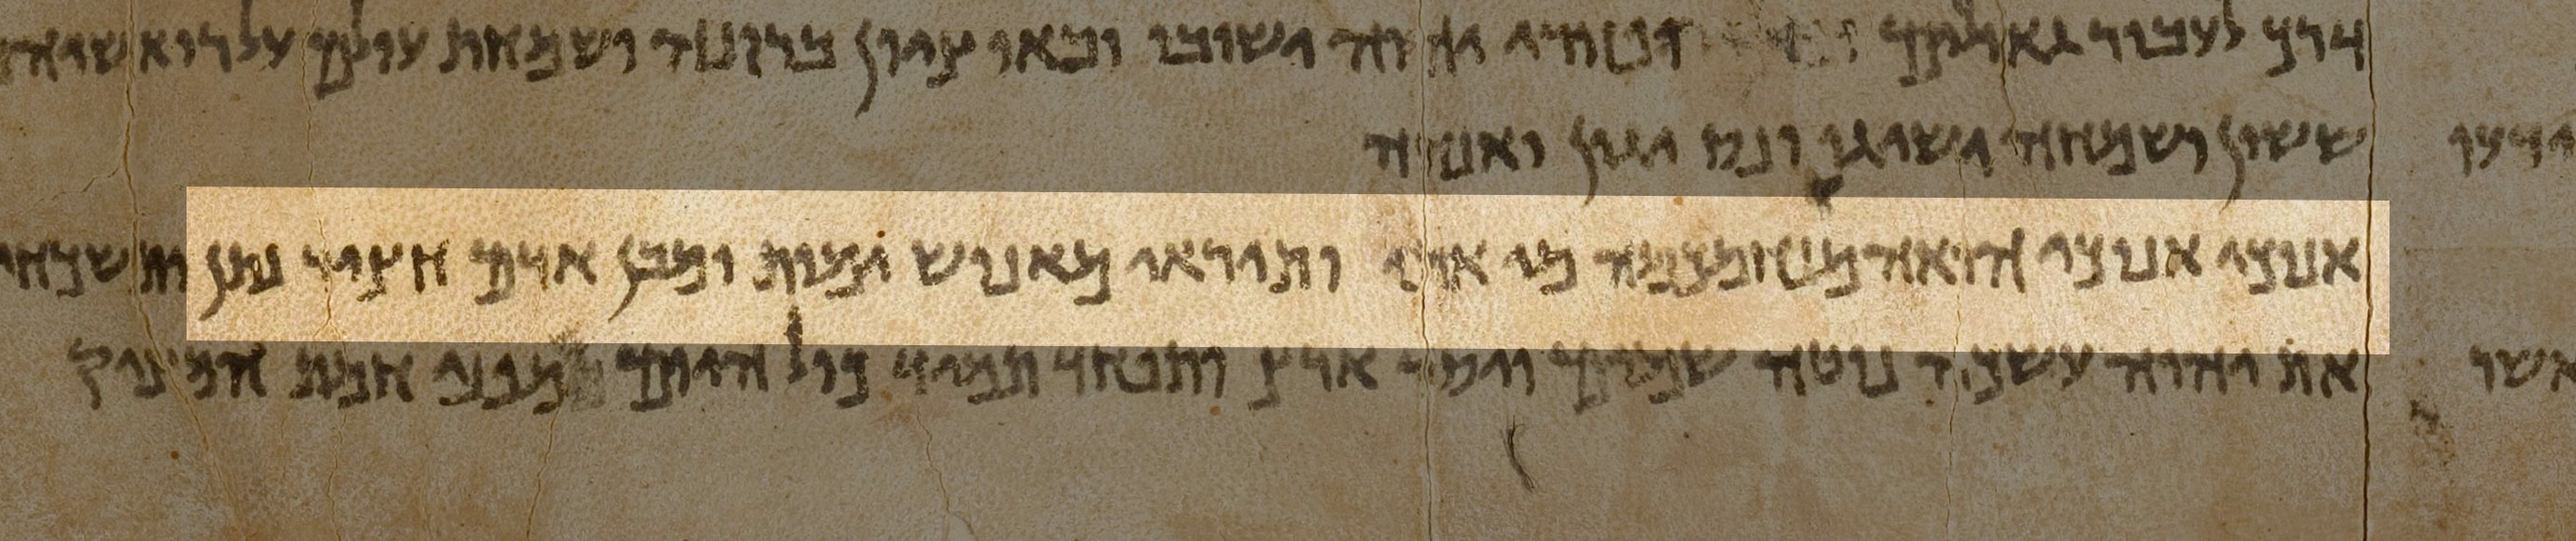 דרך לעבור גאולים יהוה ישובו ובאו ציון ברונה ושמחת עולם על רואשיה
ששון ושמחה ישיגו ונס יגון ואנחה
אנוכי אנוכי הואה מנחמכמה מי אתי ותיראי מאנוש ימות ומבן אדם חציר נתן ותשכחי
את יהוה עושכה נוטה שמים ארץ ותפחד תמיד כול היום מפני חמת המציק